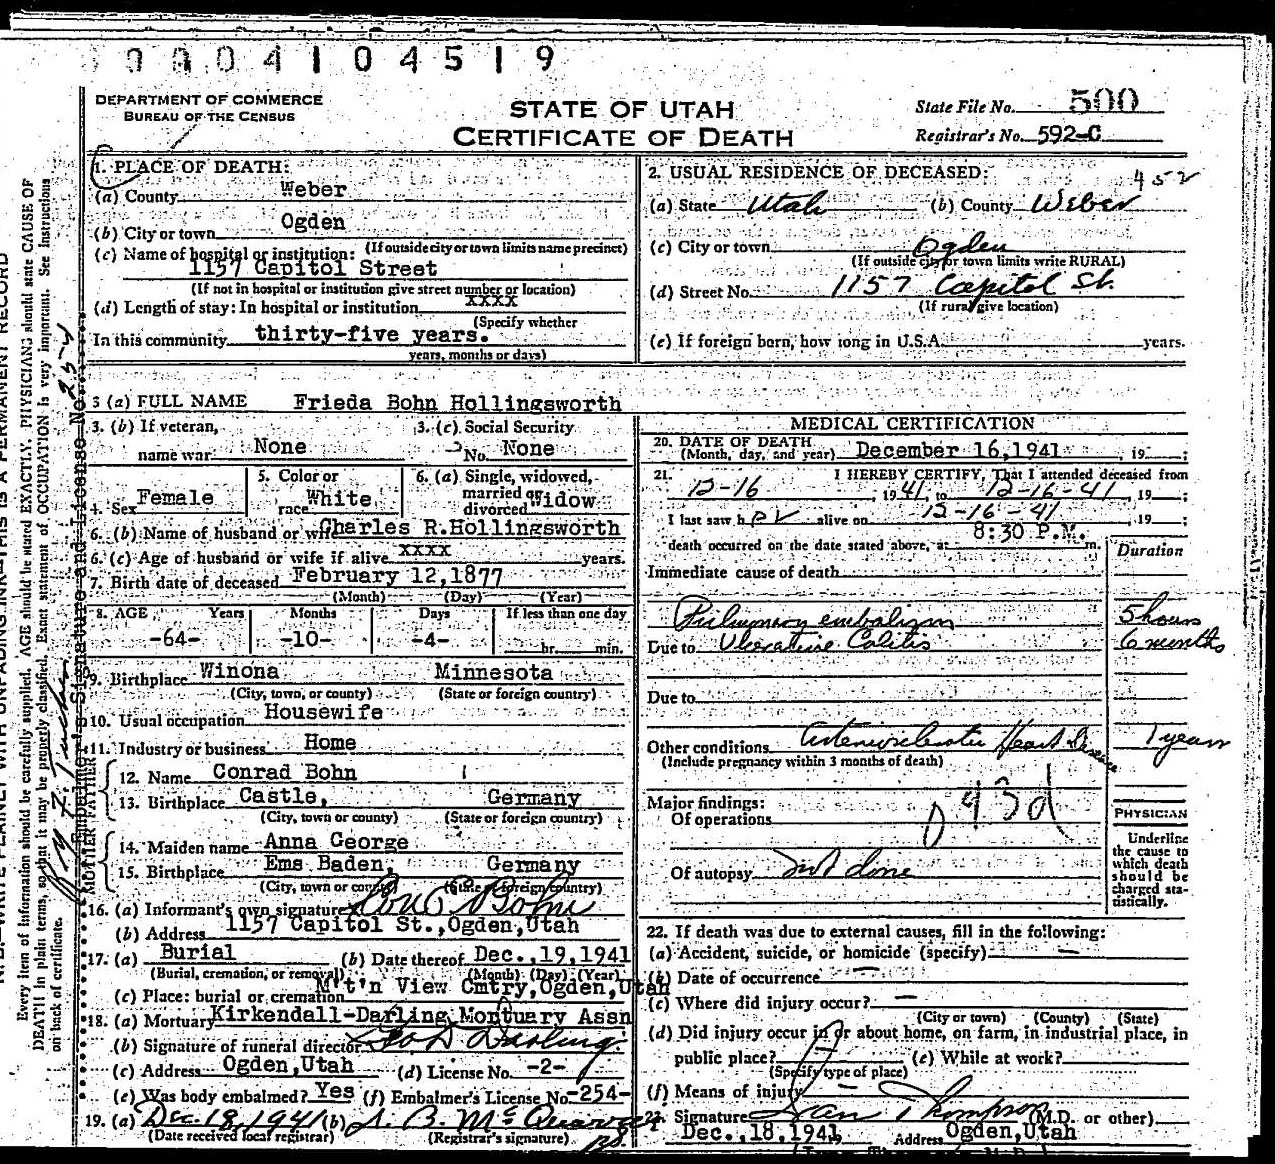 0004104519
DEPARTMENT OF COMMERCE
BUREAU OF THE CENSUS
STATE OF UTAH
CERTIFICATE OF DEATH
State File No. 500
Registrar's No. 592-C
1. PLACE OF DEATH:
(a) County Weber
(b) City or town Ogden
(If outside city or town limits name precinct)
(c) Name of hospital or institution:
1157 Capitol Street
(If not in hospital or institution give street number or location)
(d) Length of stay: In hospital or institution xxxx
(Specify whether
In this community thirty-five years.
years, months or days)
2. USUAL RESIDENCE OF DECEASED: 452
(a) State Utah (b) County Weber
(c) City or town Ogden
(If outside city or town limits write RURAL)
(d) Street No. 1157 Capitol St.
(If rural give location)
(e) If foreign born, how long in U.S.A. years.
3 (a) FULL NAME Frieda Bohn Hollingsworth
3. (b) If veteran,
name war None
3. (c) Social Security
No. None
4. Sex Female
5. Color or
race White
6. (a) Single, widowed,
married or
divorced Widow
6. (b) Name of husband or wife Charles R.Hollingsworth
6. (c) Age of husband or wife if alive xxxx years.
7. Birth date of deceased February 12,1877
(Month) (Day) (Year)
8. AGE Years Months Days If less than one day
-64- -10- -4- hr. min.
9. Birthplace Winona Minnesota
(City, town, or county) (State or foreign country)
10. Usual occupation Housewife
11. Industry or business Home
FATHER
12. Name Conrad Bohn
13. Birthplace Castle, Germany
(City, town or county) (State or foreign country)
MOTHER
14. Maiden name Anna George
15. Birthplace Ems Baden, Germany
(City, town or county) (State or foreign country)
16. (a) Informant's own signature Bohn
(b) Address 1157 Capitol St.,Ogden,Utah
17. (a) Burial (b) Date thereof Dec.,19,1941
(Burial, cremation, or removal) (Month) (Day) (Year)
(c) Place: burial or cremation M't'n View Cmtry,Ogden,Utah
18. (a) Mortuary Kirkendall-Darling Mortuary Assn
(b) Signature of funeral director Leo D Darling
(c) Address Ogden,Utah (d) License No. -2-
(e) Was body embalmed? Yes (f) Embalmer's License No. -254-
19. (a) Dec. 18, 1941 (b)
(Date received local registrar) (Registrar's signature)
MEDICAL CERTIFICATION
20. DATE OF DEATH
(Month, day, and year) December 16,1941, 19 ;
21. I HEREBY CERTIFY, That I attended deceased from
12-16, 1941, to 12-16-41, 19 ;
I last saw her alive on 12-16-41, 19 ;
death occurred on the date stated above, at 8:30 P.M. m.
Duration
Immediate cause of death
Pulmonary embolism 5 hours
Due to Ulcerative Colitis 6 months
Due to
Other conditions Arteriosclerotic Heart Disease 1 years
(Include pregnancy within 3 months of death)
Major findings:
Of operations
Of autopsy not done
PHYSICIAN
Underline
the cause to
which death
should be
charged sta-
tistically.
22. If death was due to external causes, fill in the following:
(a) Accident, suicide, or homicide (specify) —
(b) Date of occurrence —
(c) Where did injury occur? —
(City or town) (County) (State)
(d) Did injury occur in or about home, on farm, in industrial place, in
public place? (e) While at work?
(Specify type of place)
(f) Means of injury —
23. Signature Thompson (M.D. or other)
Dec.,18,1941 Address Ogden,Utah
N. B.—WRITE PLAINLY WITH UNFADING INK—THIS IS A PERMANENT RECORD
Every item of information should be carefully supplied. AGE should be stated EXACTLY. PHYSICIANS should state CAUSE OF
DEATH in plain terms, so that it may be properly classified. Exact statement of OCCUPATION is very important. See instructions
on back of certificate.
Embalmer's Signature and License No. 254